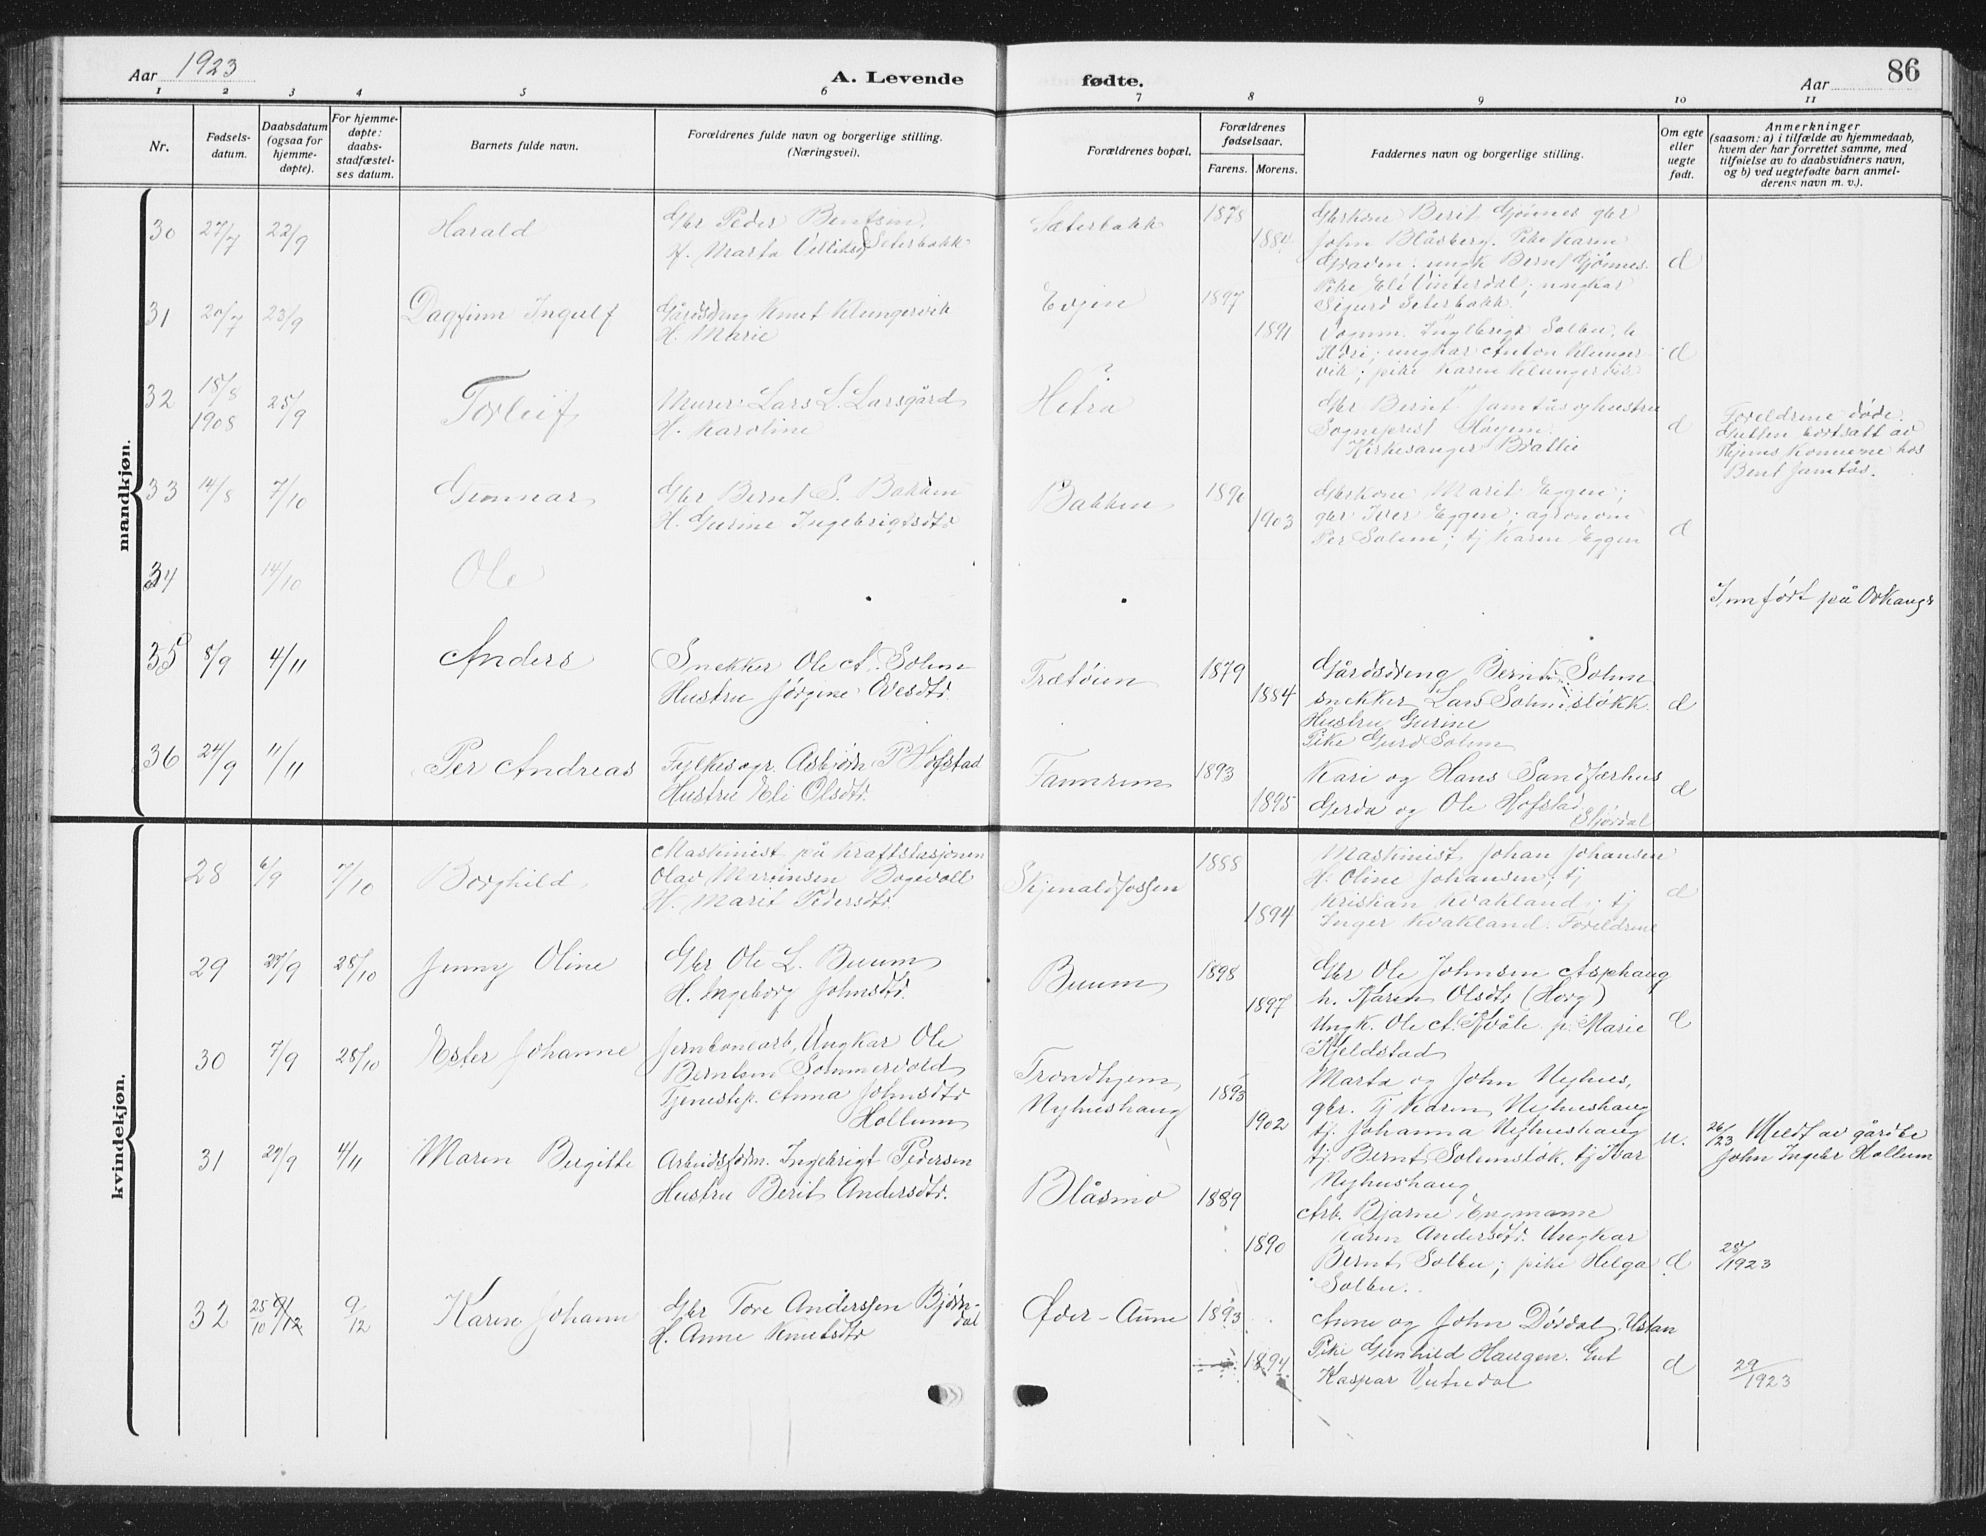 Aar 1923
A. Levende
fødte.
Aar
86
1 2 3 4 5 6 7 8 9 10 11
Nr.
Fødsels-
datum.
Daabsdatum
(ogsaa for
hjemme-
døpte).
For hjemme-
døpte:
daabs-
stadfæstel-
ses datum.
Barnets fulde navn.
Forældrenes fulde navn og borgerlige stilling.
(Næringsvei).
Forældrenes bopæl.
Forældrenes
fødselsaar.
Farens. Morens.
Faddernes navn og borgerlige stilling.
Om egte
eller
uegte
født.
Anmerkninger
(saasom: a) i tilfælde av hjemmedaab,
hvem der har forrettet samme, med
tilføielse av to daabsvidners navn,
og b) ved uegtefødte barn anmel-
derens navn m. v.).
mandkjøn.
30 27/7 22/9 Harald
Gbr Peder Bentsen
H. Marta Seterbakk
Sæterbakk 1878 1884
Gbrkone Berit Gjønnes gbr
John Blåsberg. Pike Karen
ungk Bernt Gjønnes.
Pike Eli Vinterdal; ungkar
Sigurd Seterbakk
d
31 20/7 23/9 Dagfinn Ingulf
Gårdsdreng Knut Klungervik
H. Marie
Evjen 1897 1891
Ingebrigt Solbu,
ungkar Anton Klunger-
vik; pike Karen Klungervik
d
32 15/8 1908 25/9 Torleif
Murer Lars L. Larsgård
H. Karoline
Hitra ?
Gbr Bernt Jamtås og hustru
Sogneprest
Kirkesanger Brattli
d
Foreldrene døde.
Gutten bortsatt av
Hjems kommune hos
Bent Jamtås.
33 14/8 7/10 Gunnar
Gbr Bernt S. Bakken
H. Gurine Ingebrigtsdtr
Bakken 1890 1903
Gbrkone Marit Eggen;
gbr Iver Eggen; agronom
Per Solem; tj Karen Eggen
d
34 14/10 Ole
Innført på Orkanger
35 8/9 4/11 Anders
Snekker Ole A. Solem
Hustru Jørgine Olesdtr.
Trætøien 1879 1884
Gårdsdreng Bernt Solem
snekker Lars Solemsløkk.
Hustru Gurine
Pike Gurd Solem
d
36 24/9 11/11 Per Andreas
Fylkesagr. Asbjørn P Hofstad
Hustru Eli Olsdtr.
Fannrem 1893 1895
Kari og Hans Sandfærhus
Gerda og Ole Hofstad
Stjørdal
d
kvindekjøn.
28 6/9 7/10 Borghild
Maskinist på Kraftstasjonen
Olav Martinsen Bogevoll
H. Marit Pedersdtr.
Skjenaldfossen 1888 1894
Maskinist Johan Johansen
H. Oline Johansen; tj
Kristian Kvakland; tj
Inger Kvakland. Foreldrene
d
29 27/9 28/10 Jenny Oline
Gbr Ole L. Buum
H. Ingeborg Johnsdtr.
Buum 1898 1897
Gbr Ole Johnsen Asphaug
h. Karen Olsdtr (Horg)
Ungk. Ole A. Kvåle p. Marie
Kjeldstad
d
30 7/9 28/10 Ester Johanne
Jernbanearb, Ungkar Ole
Berntsen Sommervold
Tjenestep. Anna Johnsdtr
Hollum
Trondhjem
Nyhushaug
1893 1902
Marta og John Nyhus,
gbr. Tj Karen Nyhushaug
tj. Johanna Nyhushaug
tj. Bernt Solemsløk, tj Ivar
Nyhushaug
u.
26/23 Meldt av gårdbr
John Ingebr Hollum
31 29/9 4/11 Maren Birgitte
Arbeidsform. Ingebrigt Pedersen
Hustru Berit Andersdtr.
Blåsmo 1889 1890
Arb. Bjarne Engmann
Karen Andersdtr. Ungkar
Bernt Solbu; pike Helga
Solbu.
d
28/1923
32 25/10 9/12 9/12 Karen Johann
Gbr Tore Anderssen Bjørn-
dal
H. Anne Knutsdtr
Øder-Aune 1893 1894
Anne og John Dørdal, Ustan
Pike Gunhild Haugen. Gut
Kaspar Vutudal
d
29/1923